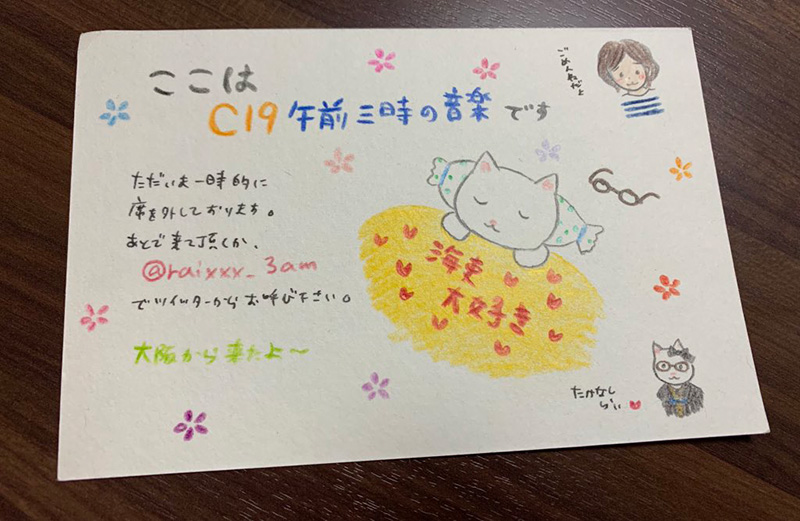 ここは
C19 午前三時の音楽です
ごめんねだよ
ただいま一時的に
席を外しております。
あとで来て頂くか、
@raixxx_3am
でツイッターからお呼び下さい。
大阪から来たよ〜
海東
大好き
たかなし
らい